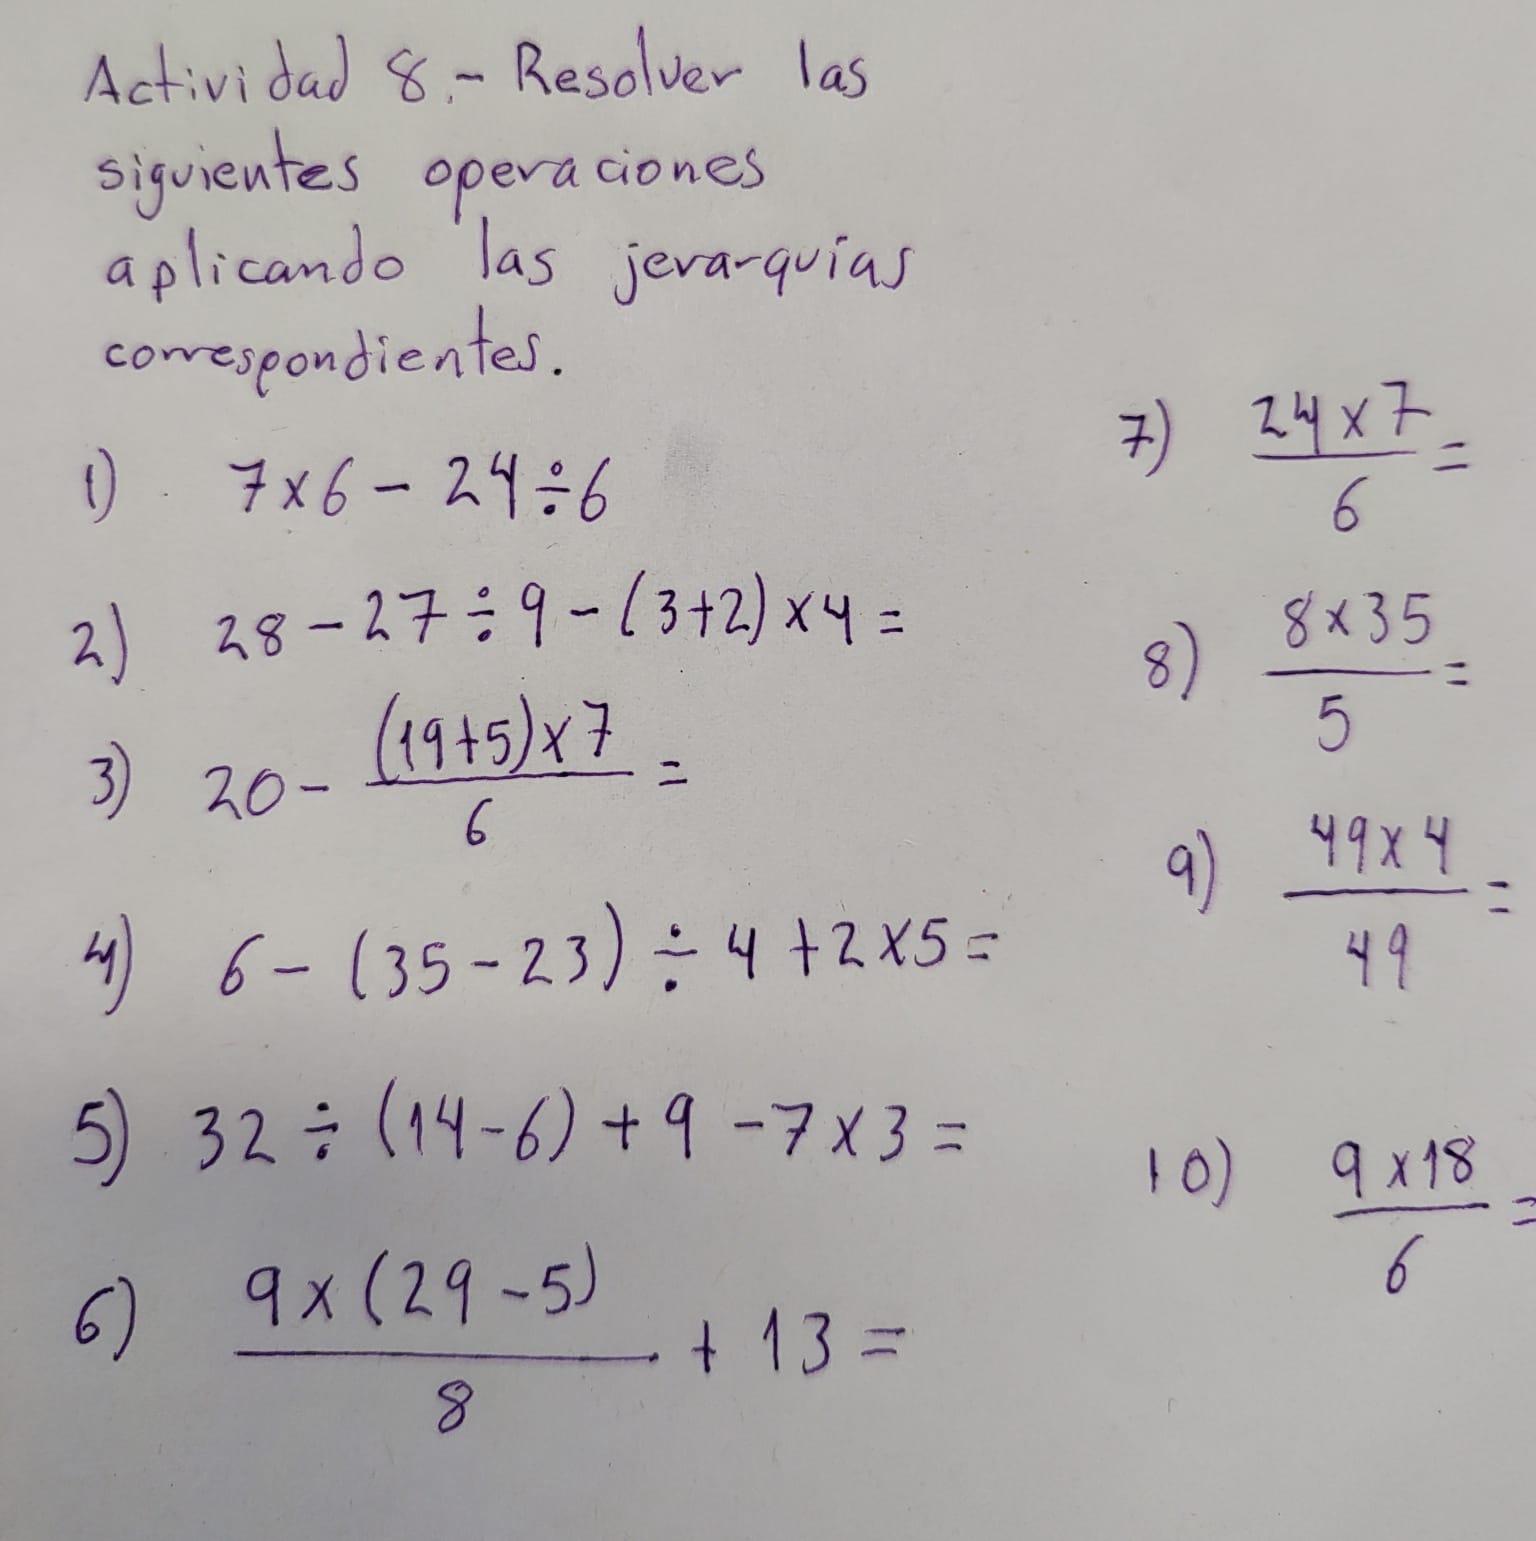 Actividad 8.- Resolver las
siguientes operaciones
aplicando las jerarquías
correspondientes.
1) 7x6 - 24÷6
2) 28 - 27 ÷ 9 - (3+2) x 4 =
3) 20 - (19+5) x 7 =
6
4) 6 - (35 - 23) ÷ 4 + 2 x 5 =
5) 32 ÷ (14 - 6) + 9 - 7 x 3 =
6) 9 x (29 - 5) + 13 =
8
7) 24 x 7 =
6
8) 8 x 35 =
5
9) 49 x 4 =
49
10) 9 x 18 =
6